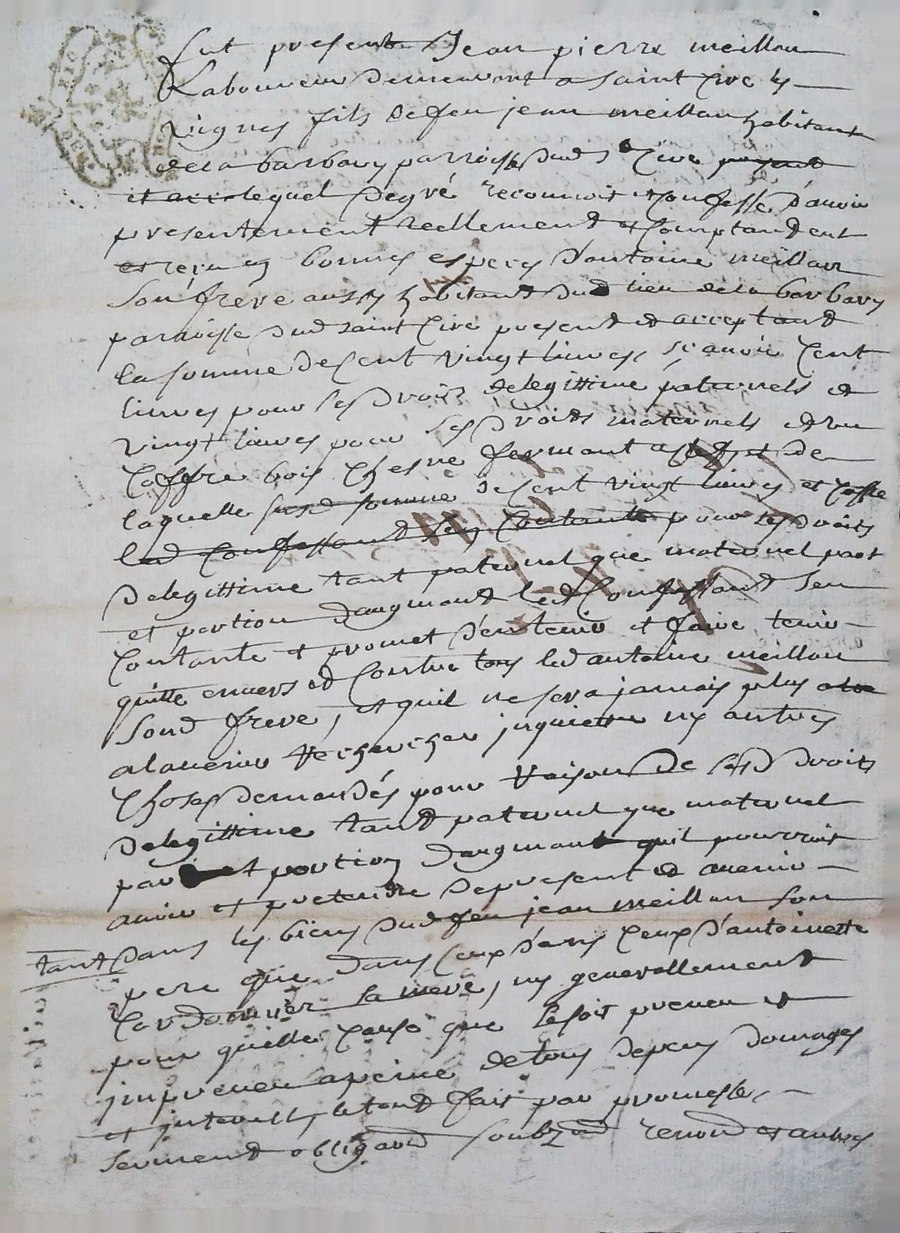 fut present Jean pierre meillan
Laboureur demeurant a saint Cire les
vignes fils de feu jean meillan habitant
de la barbary parroisse dud s^t Cire present
et acce lequel de gré reconnoit et confesse d'avoir
presentement reellement et comptand eut
et receu en bonnes especes d'antoine meillan
son frere aussy habitand dud lieu de la barbary
paroisse dud saint Cire present et acceptand
la somme de Cent vingt livres, sçavoir Cent
livres pour ses droits de legittime paternels et
vingt livres pour ses droits maternels et un
Coffre bois Chesne fermant a clef et de
laquelle susd somme de Cent vingt livres et Coffre
led Confessand sen Contante pour ses droits
de legittime tant paternel que maternel part
et portion daugmant led Confessand sen
Contante et promet d'en tenir et faire tenir
quitte envers et Contre tous led antoine meillan
soud frere, et quil ne sera jamais plus
a lavenir rechercher inquietter ny autres
Choses demandés pour raison de sesd droits
de legittime tand paternel que maternel
par et portion daugmant quil pourroit
avoir et pretendre de present et avenir
tant dans les biens dud feu jean meillan son
pere que dans ceux d'antoinette
sa mere, ny generallement
pour quelle Cause que se soit preveu et
impreveu a peine de tous depens domages
et interests, fait par promesse,
serment obligaõn renonõn et autres